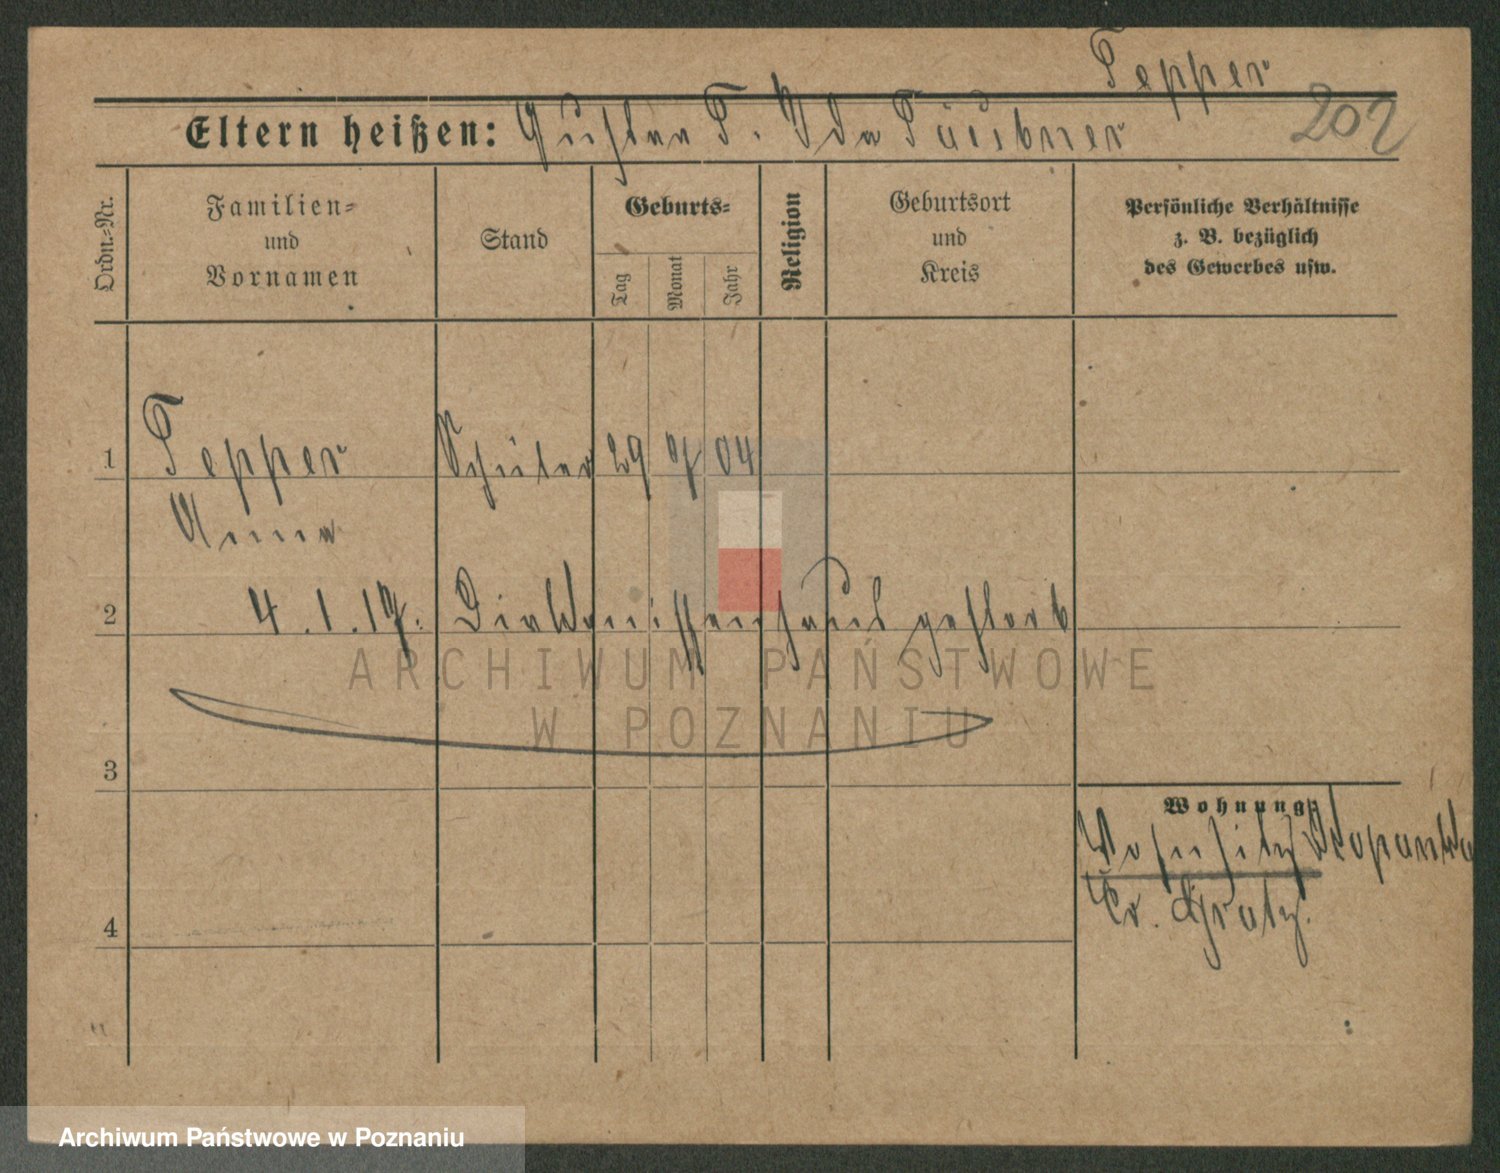 Tepper
Eltern heißen: Gustav T. Ida Täubner
202
Ordn.-Nr.
Familien-
und
Vornamen
Stand
Geburts-
Tag
Monat
Jahr
Religion
Geburtsort
und
Kreis
Persönliche Verhältnisse
z. B. bezüglich
des Gewerbes usw.
1 Tepper Schüler 29 9 04
Anna
2 4.1.17. Diakonissenhaus gestorb
ARCHIWUM PAŃSTWOWE
W POZNANIU
3
Wohnung:
Kr. Grätz.
4
Archiwum Państwowe w Poznaniu